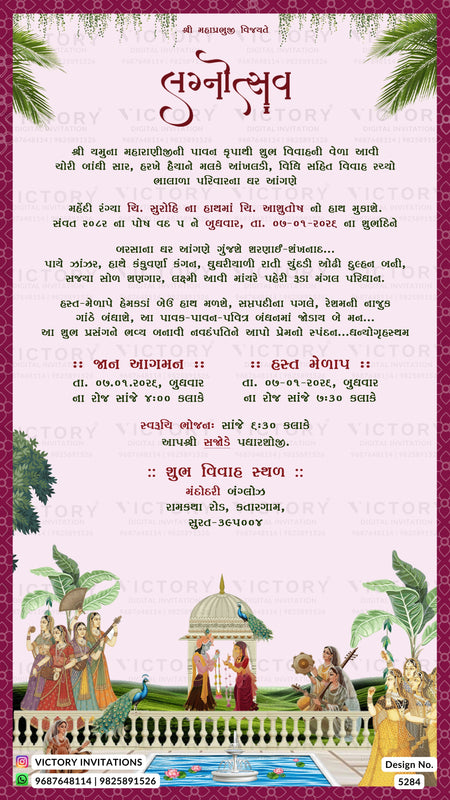 શ્રી મહાપ્રભુજી વિજયતે
લગ્નોત્સવ
શ્રી યમુના મહારાણીજીની પાવન કૃપાથી શુભ વિવાહની વેળા આવી
ચોરી બાંધી સાર, હરખે હૈયાને મલકે આંખલડી, વિધિ સહિત વિવાહ રચ્યો
ભાલાળા પરિવારના ઘર આંગણે
મહેંદી રંગ્યા ચિ. સુરોહિ ના હાથમાં ચિ. આશુતોષ નો હાથ મુકાશે.
સંવત ૨૦૮૨ ના પોષ વદ ૫ ને બુધવાર, તા. ૦૭-૦૧-૨૦૨૬ ના શુભદિને
બરસાના ઘર આંગણે ગુંજશે શરણાઈ-શંખનાદ...
પાયે ઝાંઝર, હાથે કંકુવર્ણા કંગન, ઘુઘરીયાળી રાતી ચુંદડી ઓઢી દુલ્હન બની,
સજયા સોળ શણગાર, લક્ષ્મી આવી માંયરે પહેરી રૂડા મંગલ પરિધાન.
હસ્ત-મેળાપે હેમકડાં બેઉ હાથ મળશે, સપ્તપદીના પગલે, રેશમની નાજુક
ગાંઠે બંધાશે, આ પાવક-પાવન-પવિત્ર બંધનમાં જોડાય બે મન...
આ શુભ પ્રસંગને ભવ્ય બનાવી નવદંપતિને આપો પ્રેમનો સ્પંદન...ધન્યોગૃહસ્થમ
:: જાન આગમન ::
તા. ૦૭.૦૧.૨૦૨૬, બુધવાર
ના રોજ સાંજે ૪:૦૦ કલાકે
:: હસ્ત મેળાપ ::
તા. ૦૭-૦૧-૨૦૨૬, બુધવાર
ના રોજ સાંજે ૭:૩૦ કલાકે
સ્વરૂચિ ભોજનઃ સાંજે ૬:૩૦ કલાકે
આપશ્રી સજોડે પધારશોજી.
:: શુભ વિવાહ સ્થળ ::
મંદોદરી બંગ્લોઝ
રામકથા રોડ, કતારગામ,
સુરત-૩૯૫૦૦૪
VICTORY INVITATIONS
9687648114 | 9825891526
Design No.
5284